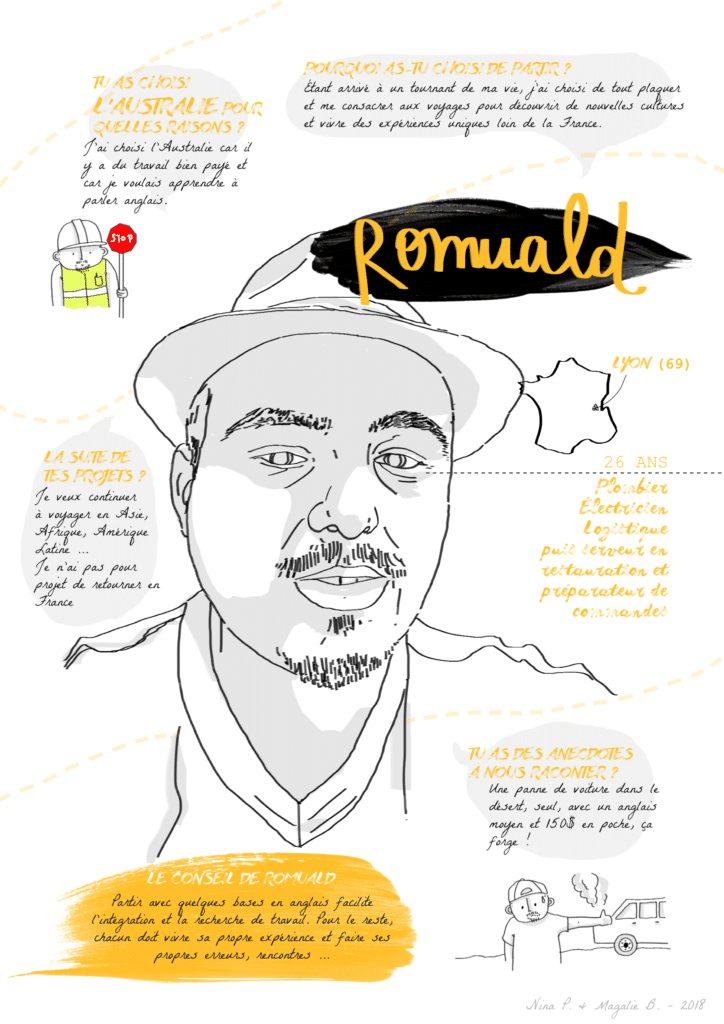 POURQUOI AS-TU CHOISI DE PARTIR ?
Étant arrivé à un tournant de ma vie, j'ai choisi de tout plaquer
et me consacrer aux voyages pour découvrir de nouvelles cultures
et vivre des expériences uniques loin de la France.
TU AS CHOISI
L'AUSTRALIE POUR
QUELLES RAISONS ?
J'ai choisi l'Australie car il
y a du travail bien payé et
car je voulais apprendre à
parler anglais.
STOP
Romuald
LYON (69)
26 ANS
Plombier
Électricien
Logistique
puis serveur en
restauration et
préparateur de
commandes
LA SUITE DE
TES PROJETS ?
Je veux continuer
à voyager en Asie,
Afrique, Amérique
Latine ...
Je n'ai pas pour
projet de retourner en
France
TU AS DES ANECDOTES
A NOUS RACONTER ?
Une panne de voiture dans le
désert, seul, avec un anglais
moyen et 150$ en poche, ça
forge !
LE CONSEIL DE ROMUALD
Partir avec quelques bases en anglais facilite
l'intégration et la recherche de travail. Pour le reste,
chacun doit vivre sa propre expérience et faire ses
propres erreurs, rencontres ...
Nina P. & Magalie B. - 2018